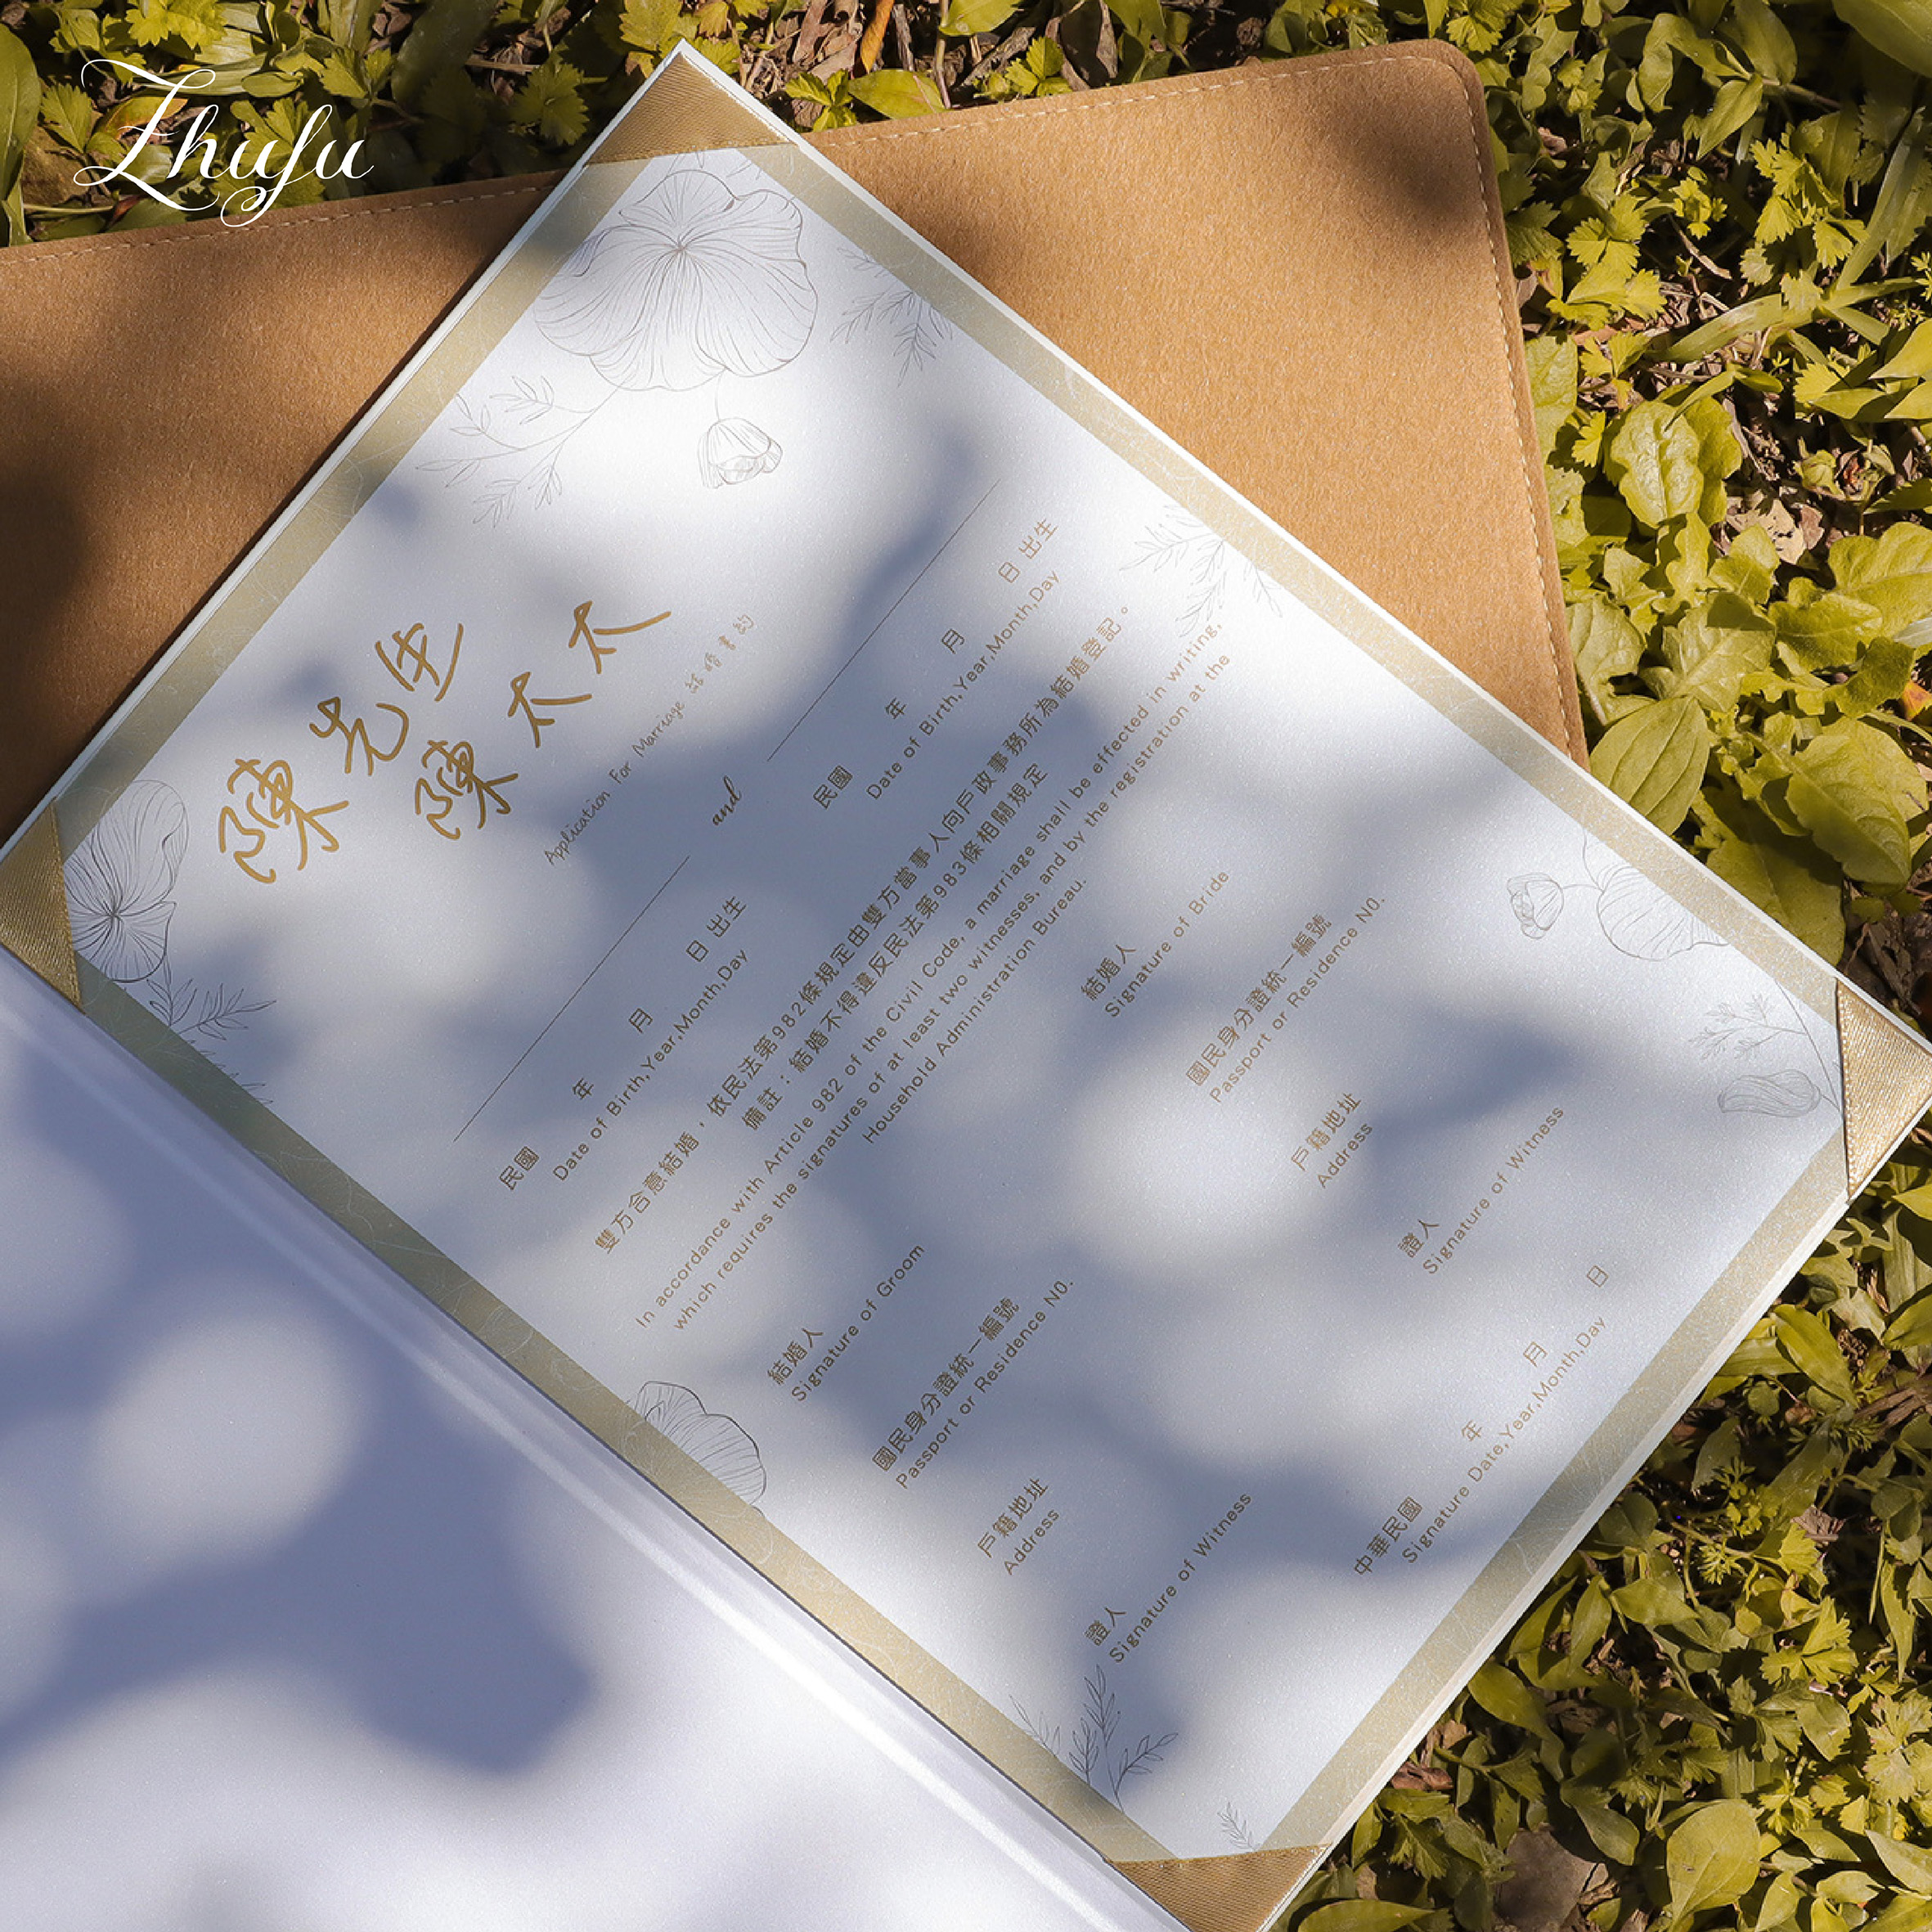 Zhufu
陳先生
陳太太
Application For Marriage 結婚書約
and
民國 年 月 日 出生
Date of Birth,Year,Month,Day
民國 年 月 日 出生
Date of Birth,Year,Month,Day
雙方合意結婚，依民法第982條規定由雙方當事人向戶政事務所為結婚登記。
備註：結婚不得違反民法第983條相關規定
In accordance with Article 982 of the Civil Code, a marriage shall be effected in writing,
which requires the signatures of at least two witnesses, and by the registration at the
Household Administration Bureau.
結婚人
Signature of Groom
結婚人
Signature of Bride
國民身分證統一編號
Passport or Residence NO.
國民身分證統一編號
Passport or Residence NO.
戶籍地址
Address
戶籍地址
Address
證人
Signature of Witness
證人
Signature of Witness
中華民國 年 月 日
Signature Date,Year,Month,Day